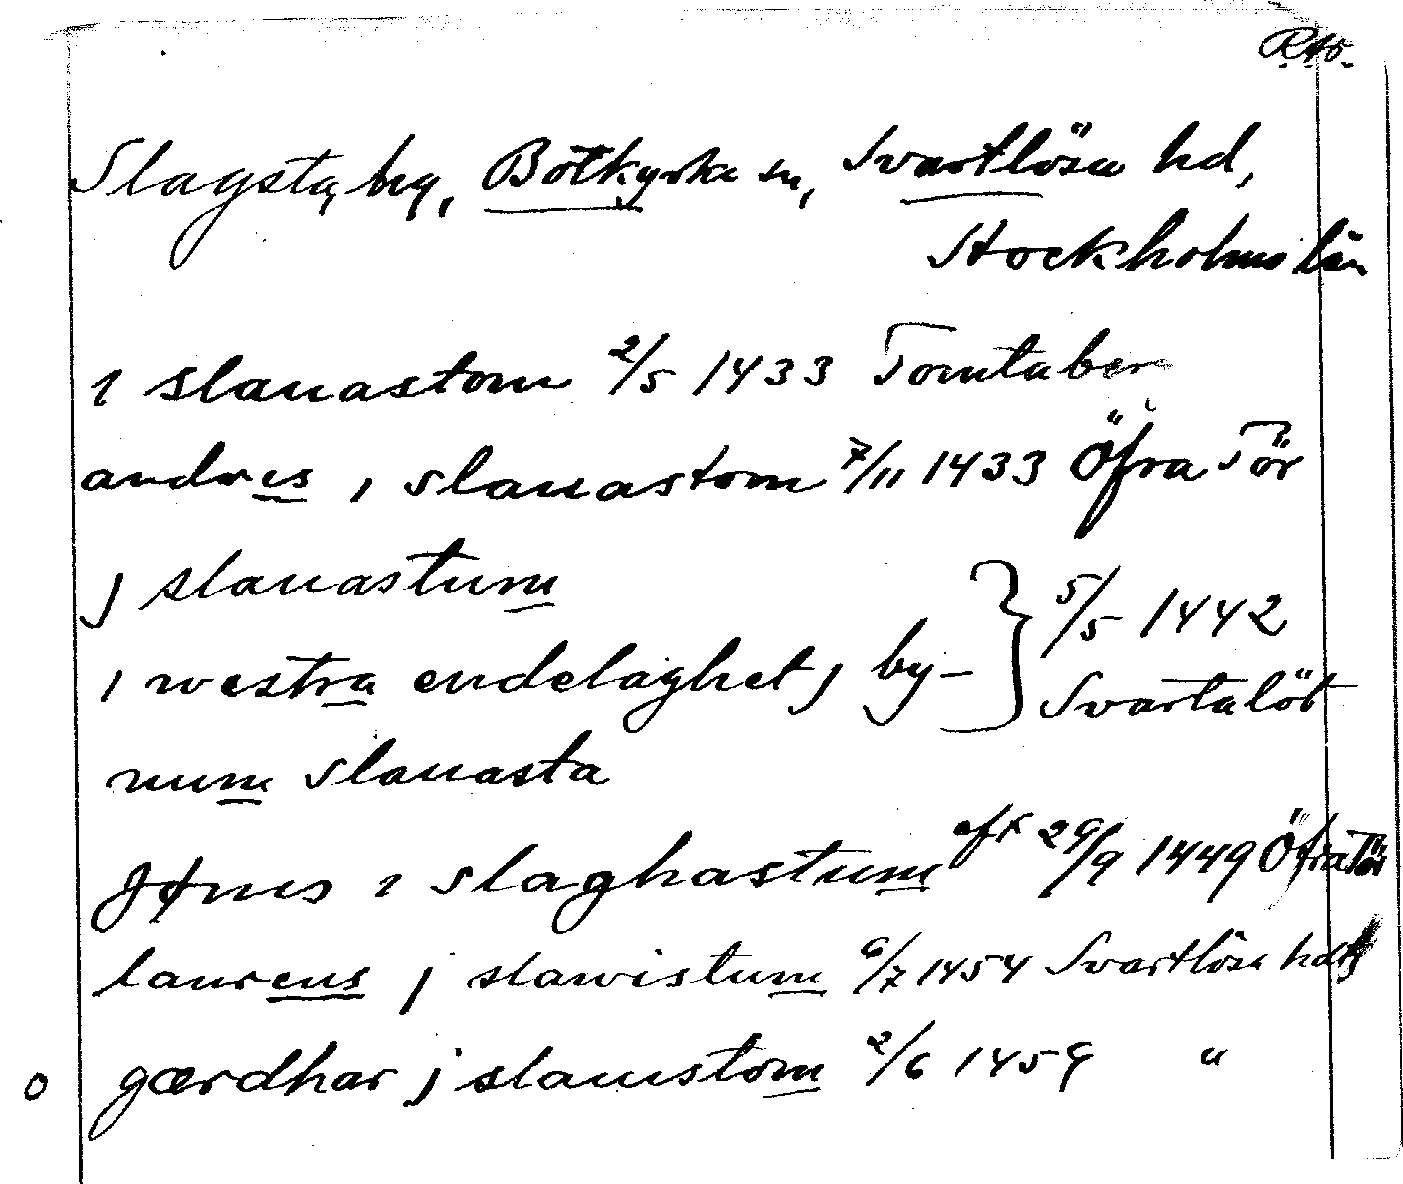 RAÖ.
Slagsta, by, Botkyrka sn, Svartlösa hd,
Stockholms län
i slauastom 2/5 1433 Tomtaber
andres i slauastom 7/11 1433 Öfra Tör
j slauastum
i westra endelaghet j by- } 5/5 1442 Svartalöt
num slauasta
Jønus i slaghastum eft 29/9 1449 Öfra Tör
laurens j slawistum 6/7 1454 Svartlösa hds
gærdhar j slaustom 2/6 1459 "